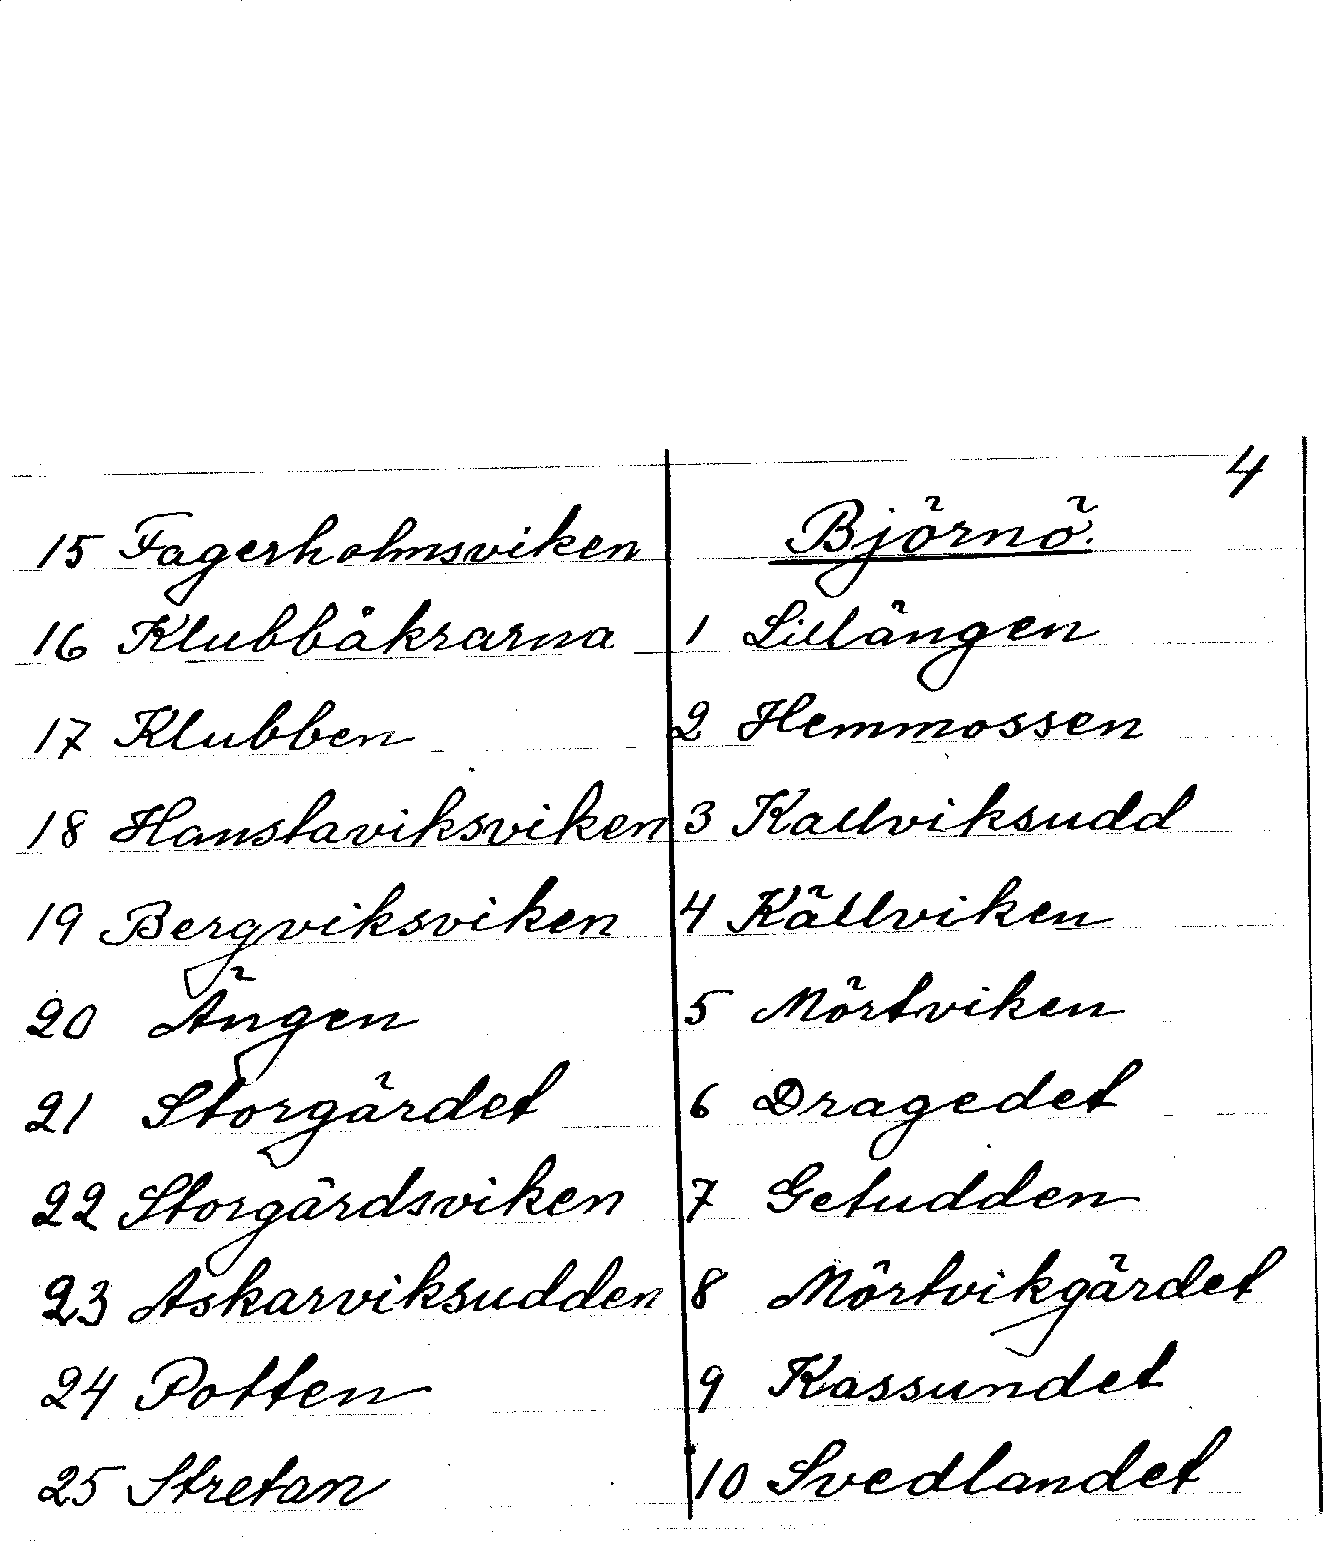 4
15 Fagerholmsviken
16 Klubbåkrarna
17 Klubben
18 Hanstaviksviken
19 Bergviksviken
20 Ängen
21 Storgärdet
22 Storgärdsviken
23 Askarviksudden
24 Potten
25 Stretan
Björnö.
1 Lillängen
2 Hemmossen
3 Kallviksudd
4 Källviken
5 Mörtviken
6 Dragedet
7 Getudden
8 Mörtvikgärdet
9 Kassundet
10 Svedlandet